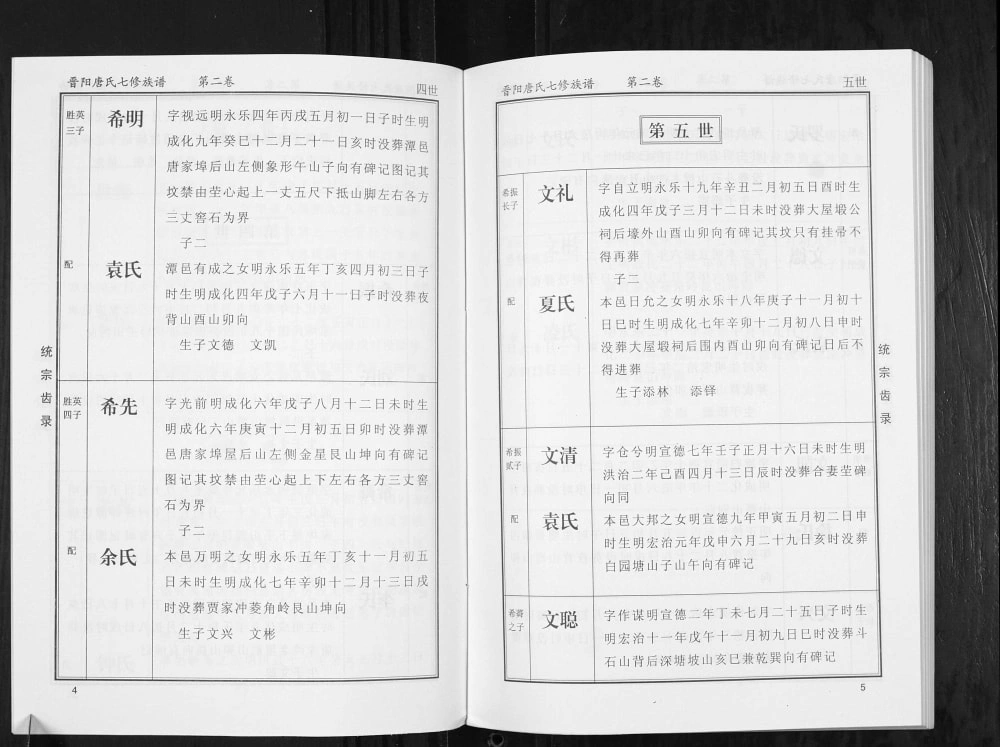 晋阳唐氏七修族谱 第二卷 四世
胜英
三子
希明
字视远明永乐四年丙戌五月初一日子时生明
成化九年癸巳十二月二十一日亥时没葬潭邑
唐家埠后山左侧象形午山子向有碑记图记其
坟禁由茔心起上一丈五尺下抵山脚左右各方
三丈窖石为界
子二
配
袁氏
潭邑有成之女明永乐五年丁亥四月初三日子
时生明成化四年戊子六月十一日子时没葬夜
背山酉山卯向
生子文德 文凯
统宗齿录
胜英
四子
希先
字光前明成化六年戊子八月十二日未时生
明成化六年庚寅十二月初五日卯时没葬潭
邑唐家埠屋后山左侧金星艮山坤向有碑记
图记其坟禁由茔心起上下左右各方三丈窖
石为界
子二
配
余氏
本邑万明之女明永乐五年丁亥十一月初五
日未时生明成化七年辛卯十二月十三日戌
时没葬贾家冲菱角岭艮山坤向
生子文兴 文彬
4
晋阳唐氏七修族谱 第二卷 五世
第五世
希振
长子
文礼
字自立明永乐十九年辛丑二月初五日酉时生
成化四年戊子三月十二日未时没葬大屋塅公
祠后壕外山酉山卯向有碑记其坟只有挂帚不
得再葬
子二
配
夏氏
本邑日允之女明永乐十八年庚子十一月初十
日巳时生明成化七年辛卯十二月初八日申时
没葬大屋塅祠后围内酉山卯向有碑记日后不
得进葬
生子添林 添铎
统宗齿录
希振
贰子
文清
字仓兮明宣德七年壬子正月十六日未时生明
洪治二年己酉四月十三日辰时没葬合妻茔碑
向同
配
袁氏
本邑大邦之女明宣德九年甲寅五月初二日申
时生明宏治元年戊申六月二十九日亥时没葬
白园塘山子山午向有碑记
之子
文聪
字作谋明宣德二年丁未七月二十五日子时生
明宏治十一年戊午十一月初九日巳时没葬斗
石山背后深塘坡山亥巳兼乾巽向有碑记
5